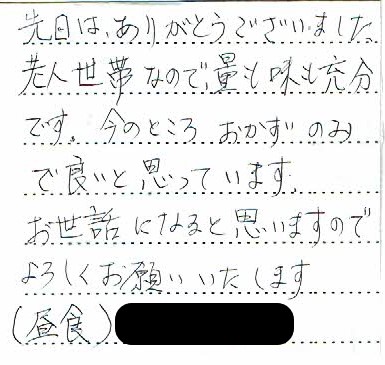 先日は、ありがとうございました、
老人世帯なので、量も味も充分
です。今のところ おかずのみ
で良いと思っています。
お世話になると思いますので
よろしくお願いいたします
(昼食)